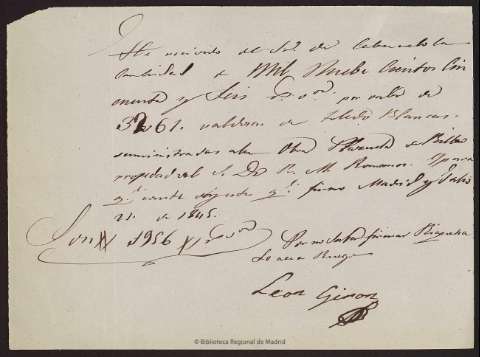 He recivido del Sr. de Cabanas la
Cantidad de Mil Nuebe Cientos Cin
cuenta y Seis por valor de
3261. valdosas de Blancas.
suministradas a la Obra de
propiedad del S. Dn. R. M. Romanos. Y para
qe. conste qe. firmo Madrid y Julio
21. de 1845.
Son 1956
Por no saber firmar
Lo ace a Ruego
Leon Giron
©Biblioteca Regional de Madrid